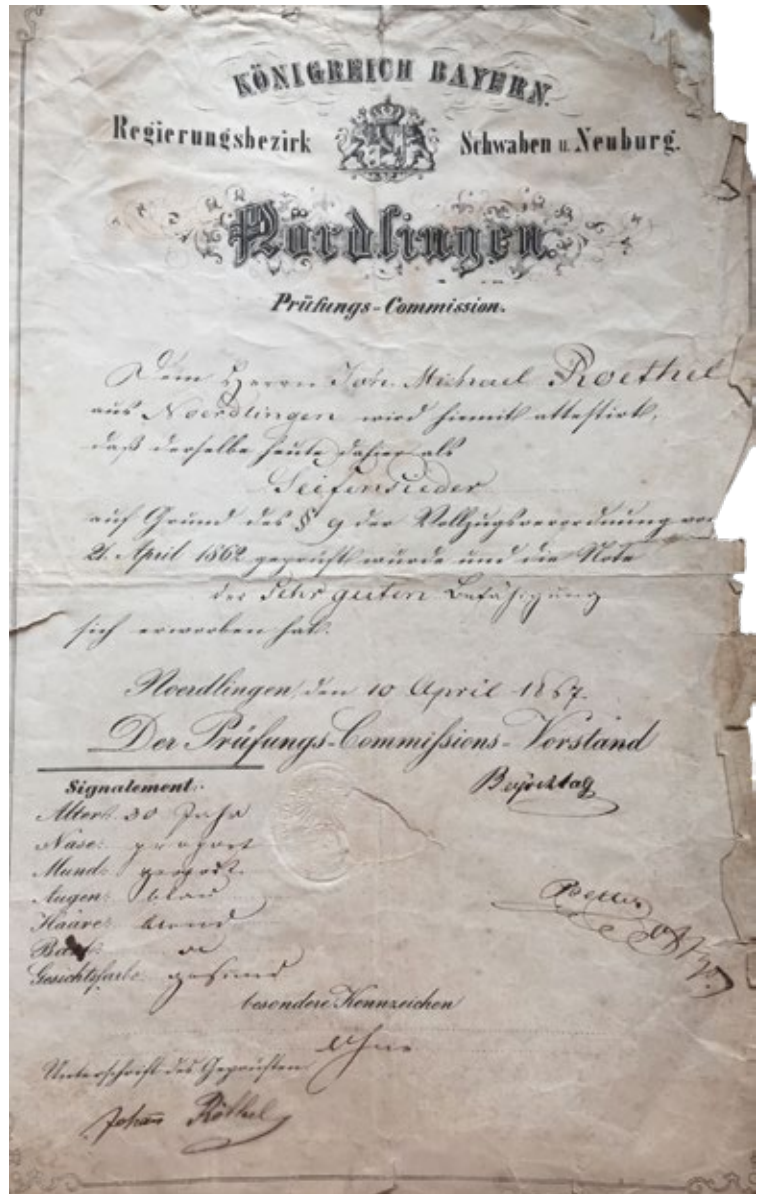 KÖNIGREICH BAYERN.
Regierungsbezirk Schwaben u. Neuburg.
Nördlingen.
Prüfungs-Commission.
Dem Herrn Joh. Michael Roethel
aus Noerdlingen wird hiemit attestirt,
daß derselbe heute dahier als
Seifensieder
auf Grund des § 9 der Vollzugsverordnung
21. April 1862 geprüft wurde und die Note
der Sehr guten Befähigung
sich erworben hat.
Noerdlingen, den 10 April 1867.
Der Prüfungs-Commissions-Vorstand
Signalement.
Alter: 30 Jahr
Nase:
Mund:
Augen: blau
Haare: blond
Bart:
Gesichtsfarbe: gesund
besondere Kennzeichen
Ohne
Unterschrift des Geprüften
Johann Röthel